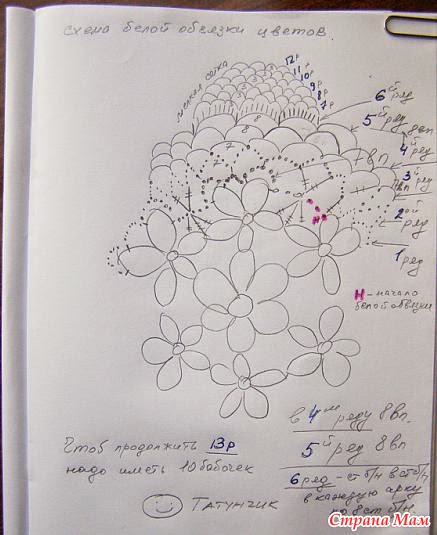 схема белой обвязки цветов.
мелкая сетка
12р
11р
10р
9р
8р
7р
3
3
3
3
8
8
7
7
6й ряд
5й ряд 8вп
4й ряд
7вп
3й ряд
7вп
2ой ряд
1 ряд
Н
Н - начало
белой обвязки
в 4ом ряду 8вп.
5й ряд 8вп
6 ряд - ст б/н в ст б/н
в каждую арку
по 8 ст б/н
Чтоб продолжить 13р
надо иметь 10 бабочек
Татунчик
Страна Мам